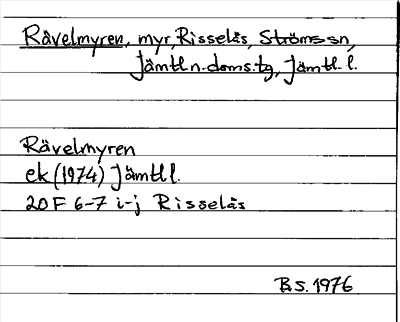 Råvelmyren, myr, Risselås, Ströms sn,
Jämtl. n. doms. tg, Jämtl. l.
Råvelmyren
ek (1974) Jämtl l.
20 F 6-7 i-j Risselås
B.S. 1976